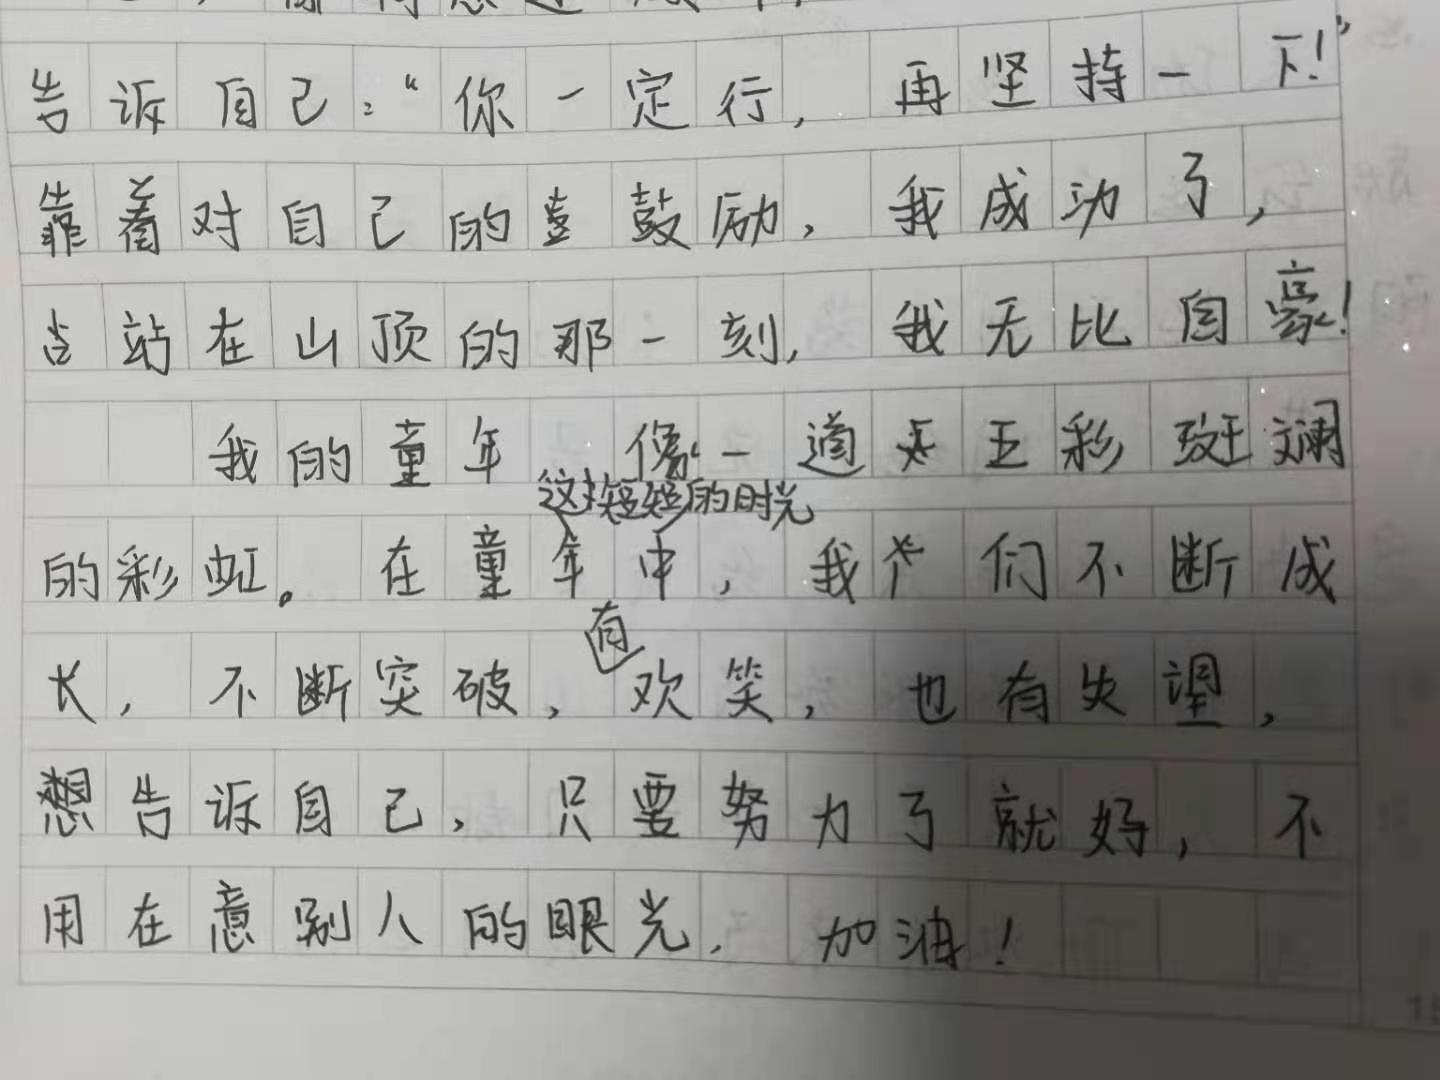 告诉自己:“你一定行,再坚持一下!”
靠着对自己的鼓励,我成功了,
站在山顶的那一刻,我无比自豪!
我的童年像一道五彩斑斓
这短短的时光
的彩虹。在童年中,我们不断成
有
长,不断突破,欢笑,也有失望,
想告诉自己,只要努力了就好,不
用在意别人的眼光,加油!